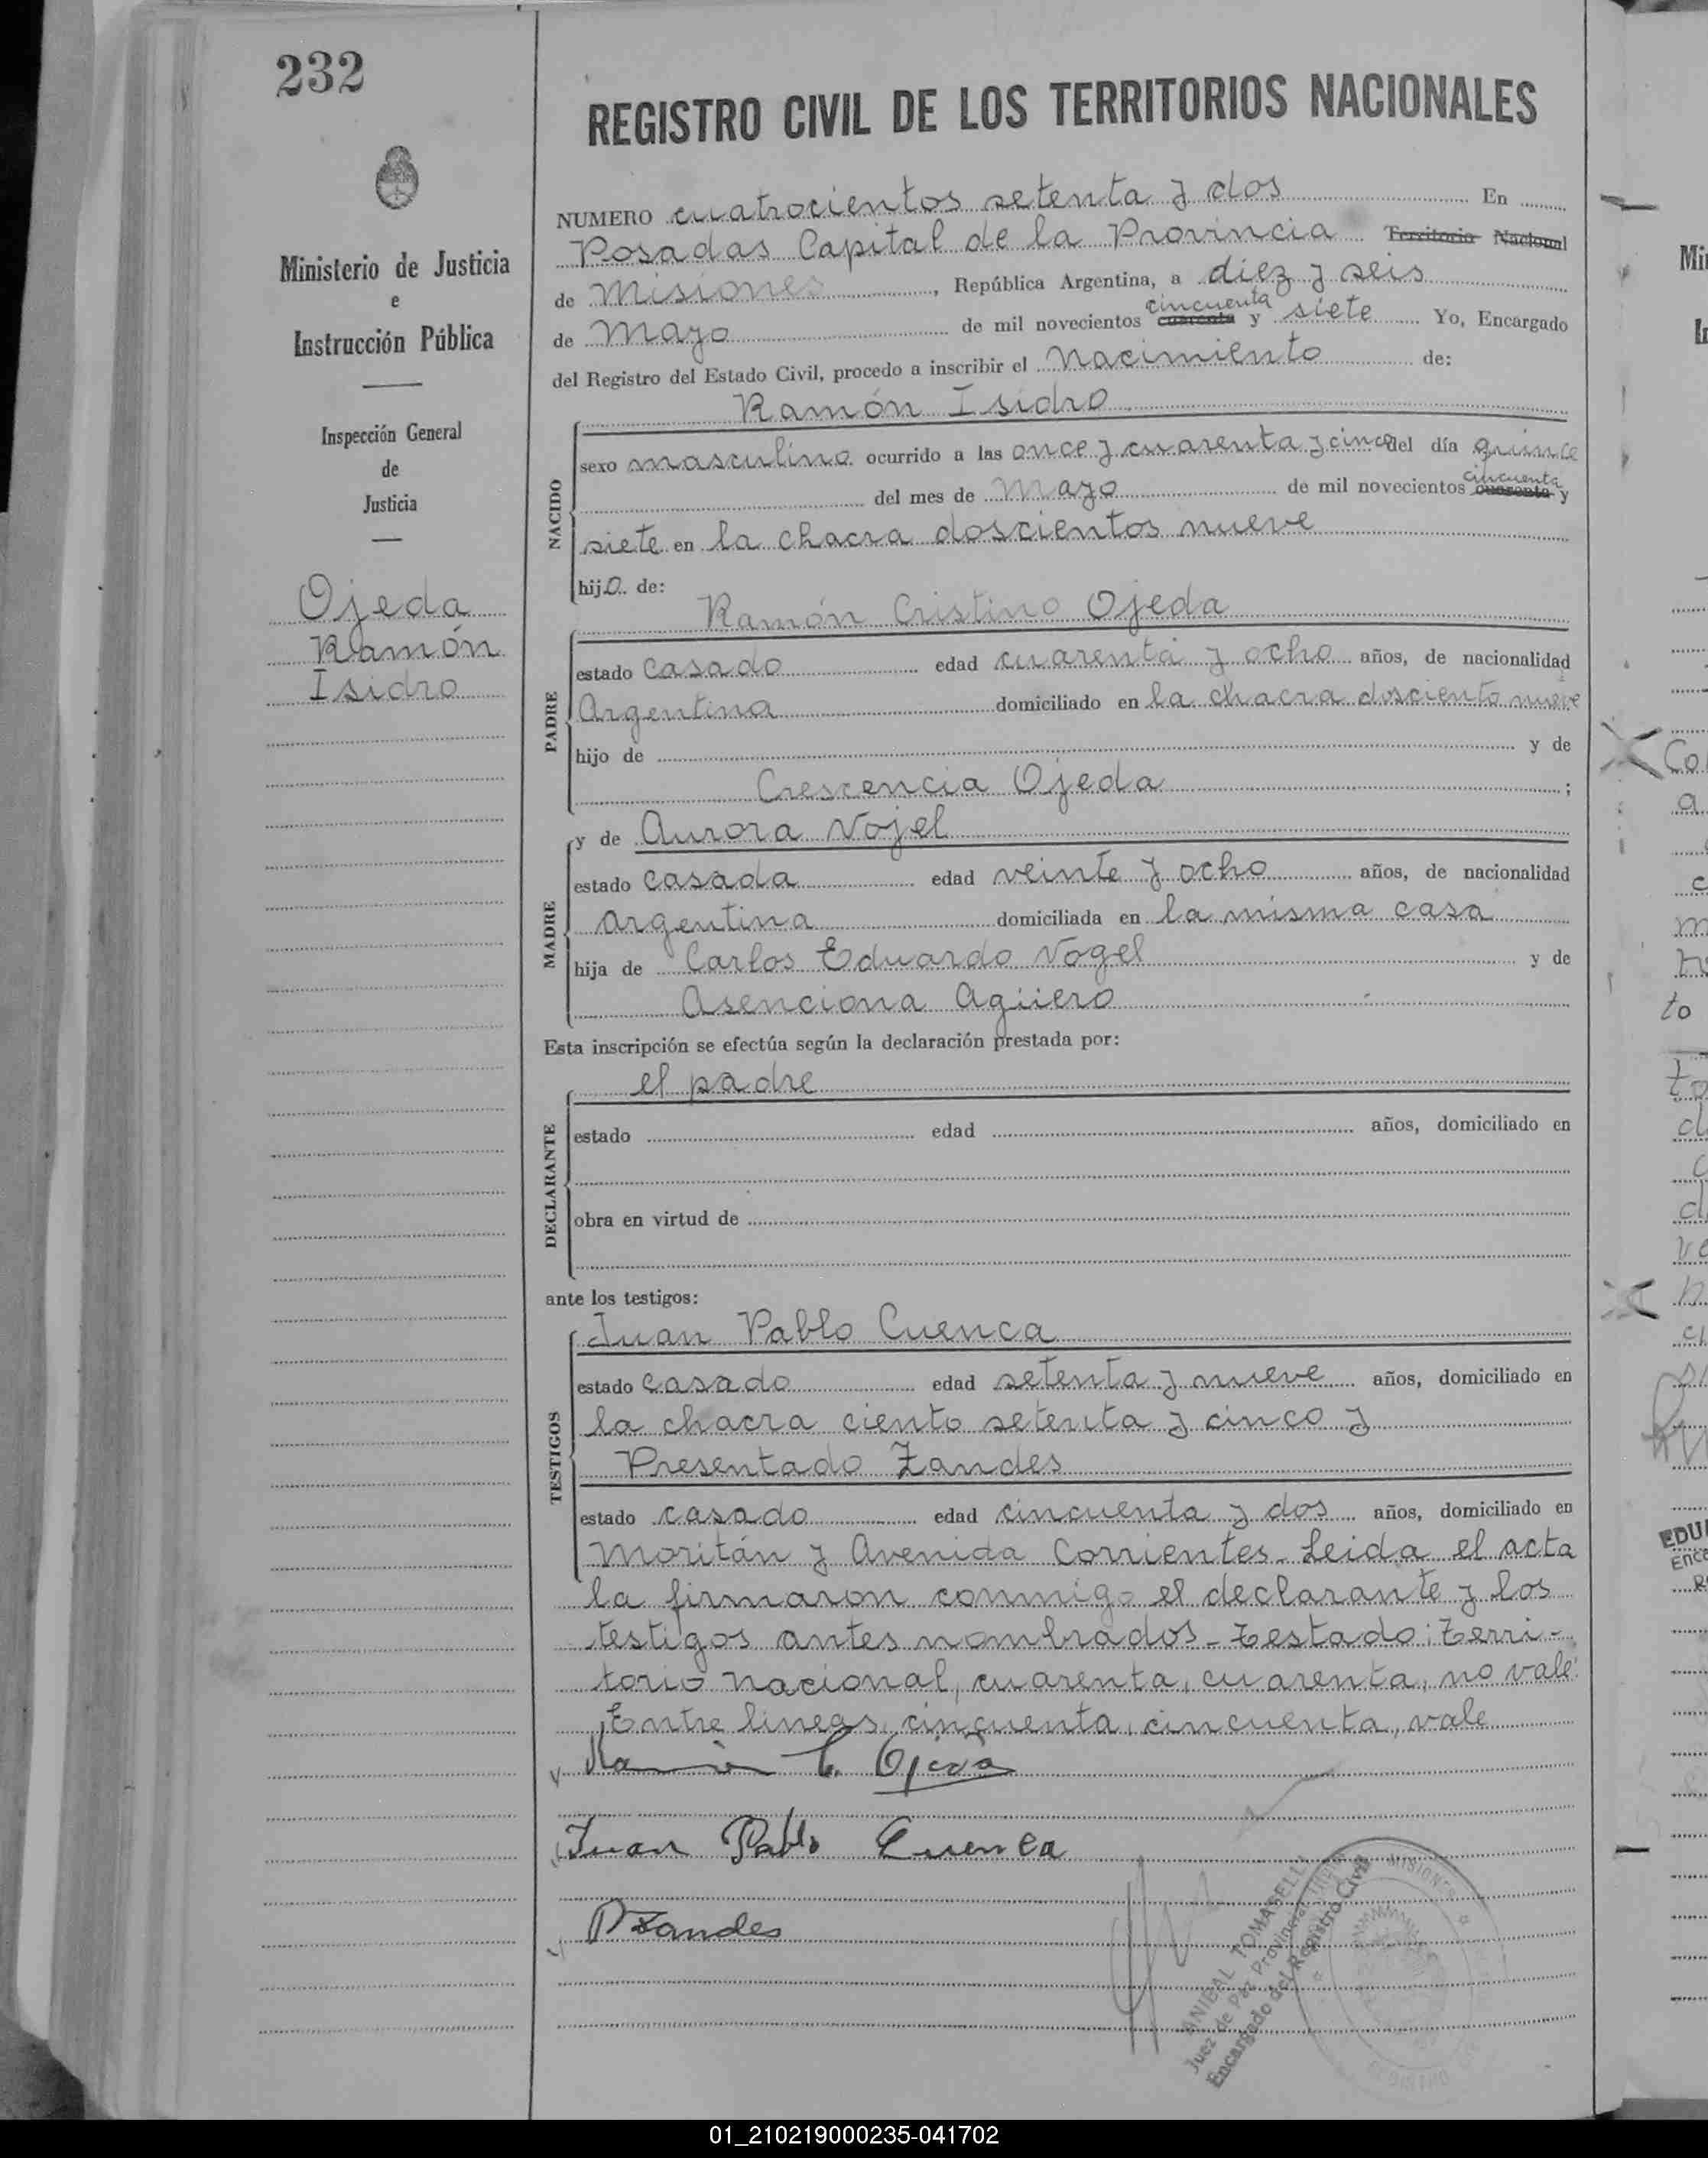 232
REGISTRO CIVIL DE LOS TERRITORIOS NACIONALES
Ministerio de Justicia
e
Instrucción Pública
Inspección General
de
Justicia
Ojeda
Ramón
Isidro
NUMERO cuatrocientos setenta y dos En
Posadas Capital de la Provincia Territorio Nacional
de Misiones, República Argentina, a diez y seis
cincuenta
de Mayo de mil novecientos cuarenta y siete Yo, Encargado
del Registro del Estado Civil, procedo a inscribir el Nacimiento de:
Ramón Isidro
NACIDO
sexo masculino ocurrido a las once y cuarenta y cinco del día quince
cincuenta
del mes de Mayo de mil novecientos cuarenta y
siete en la chacra doscientos nueve
hijo de:
Ramón Cristino Ojeda
PADRE
estado casado edad cuarenta y ocho años, de nacionalidad
Argentina domiciliado en la chacra dosciento nueve
hijo de y de
Crescencia Ojeda ;
y de Aurora Vojel
MADRE
estado casada edad veinte y ocho años, de nacionalidad
argentina domiciliada en la misma casa
hija de Carlos Eduardo Vogel y de
Asenciona Agüero
Esta inscripción se efectúa según la declaración prestada por:
el padre
DECLARANTE
estado edad años, domiciliado en
obra en virtud de
ante los testigos:
Juan Pablo Cuenca
TESTIGOS
estado casado edad setenta y nueve años, domiciliado en
la chacra ciento setenta y cinco y
Presentado Zandes
estado casado edad cincuenta y dos años, domiciliado en
Moritán y Avenida Corrientes. Leida el acta
la firmaron conmigo el declarante y los
testigos antes nombrados - Testado: Terri-
torio nacional, cuarenta, cuarenta, no vale.
Entre lineas, cincuenta, cincuenta, vale
Ramón C. Ojeda
Juan Pablo Cuenca
PZandes
ANIBAL TOMASELLI
Juez de Paz Provincial
Encargado del Registro Civil
MISIONES
01_210219000235-041702